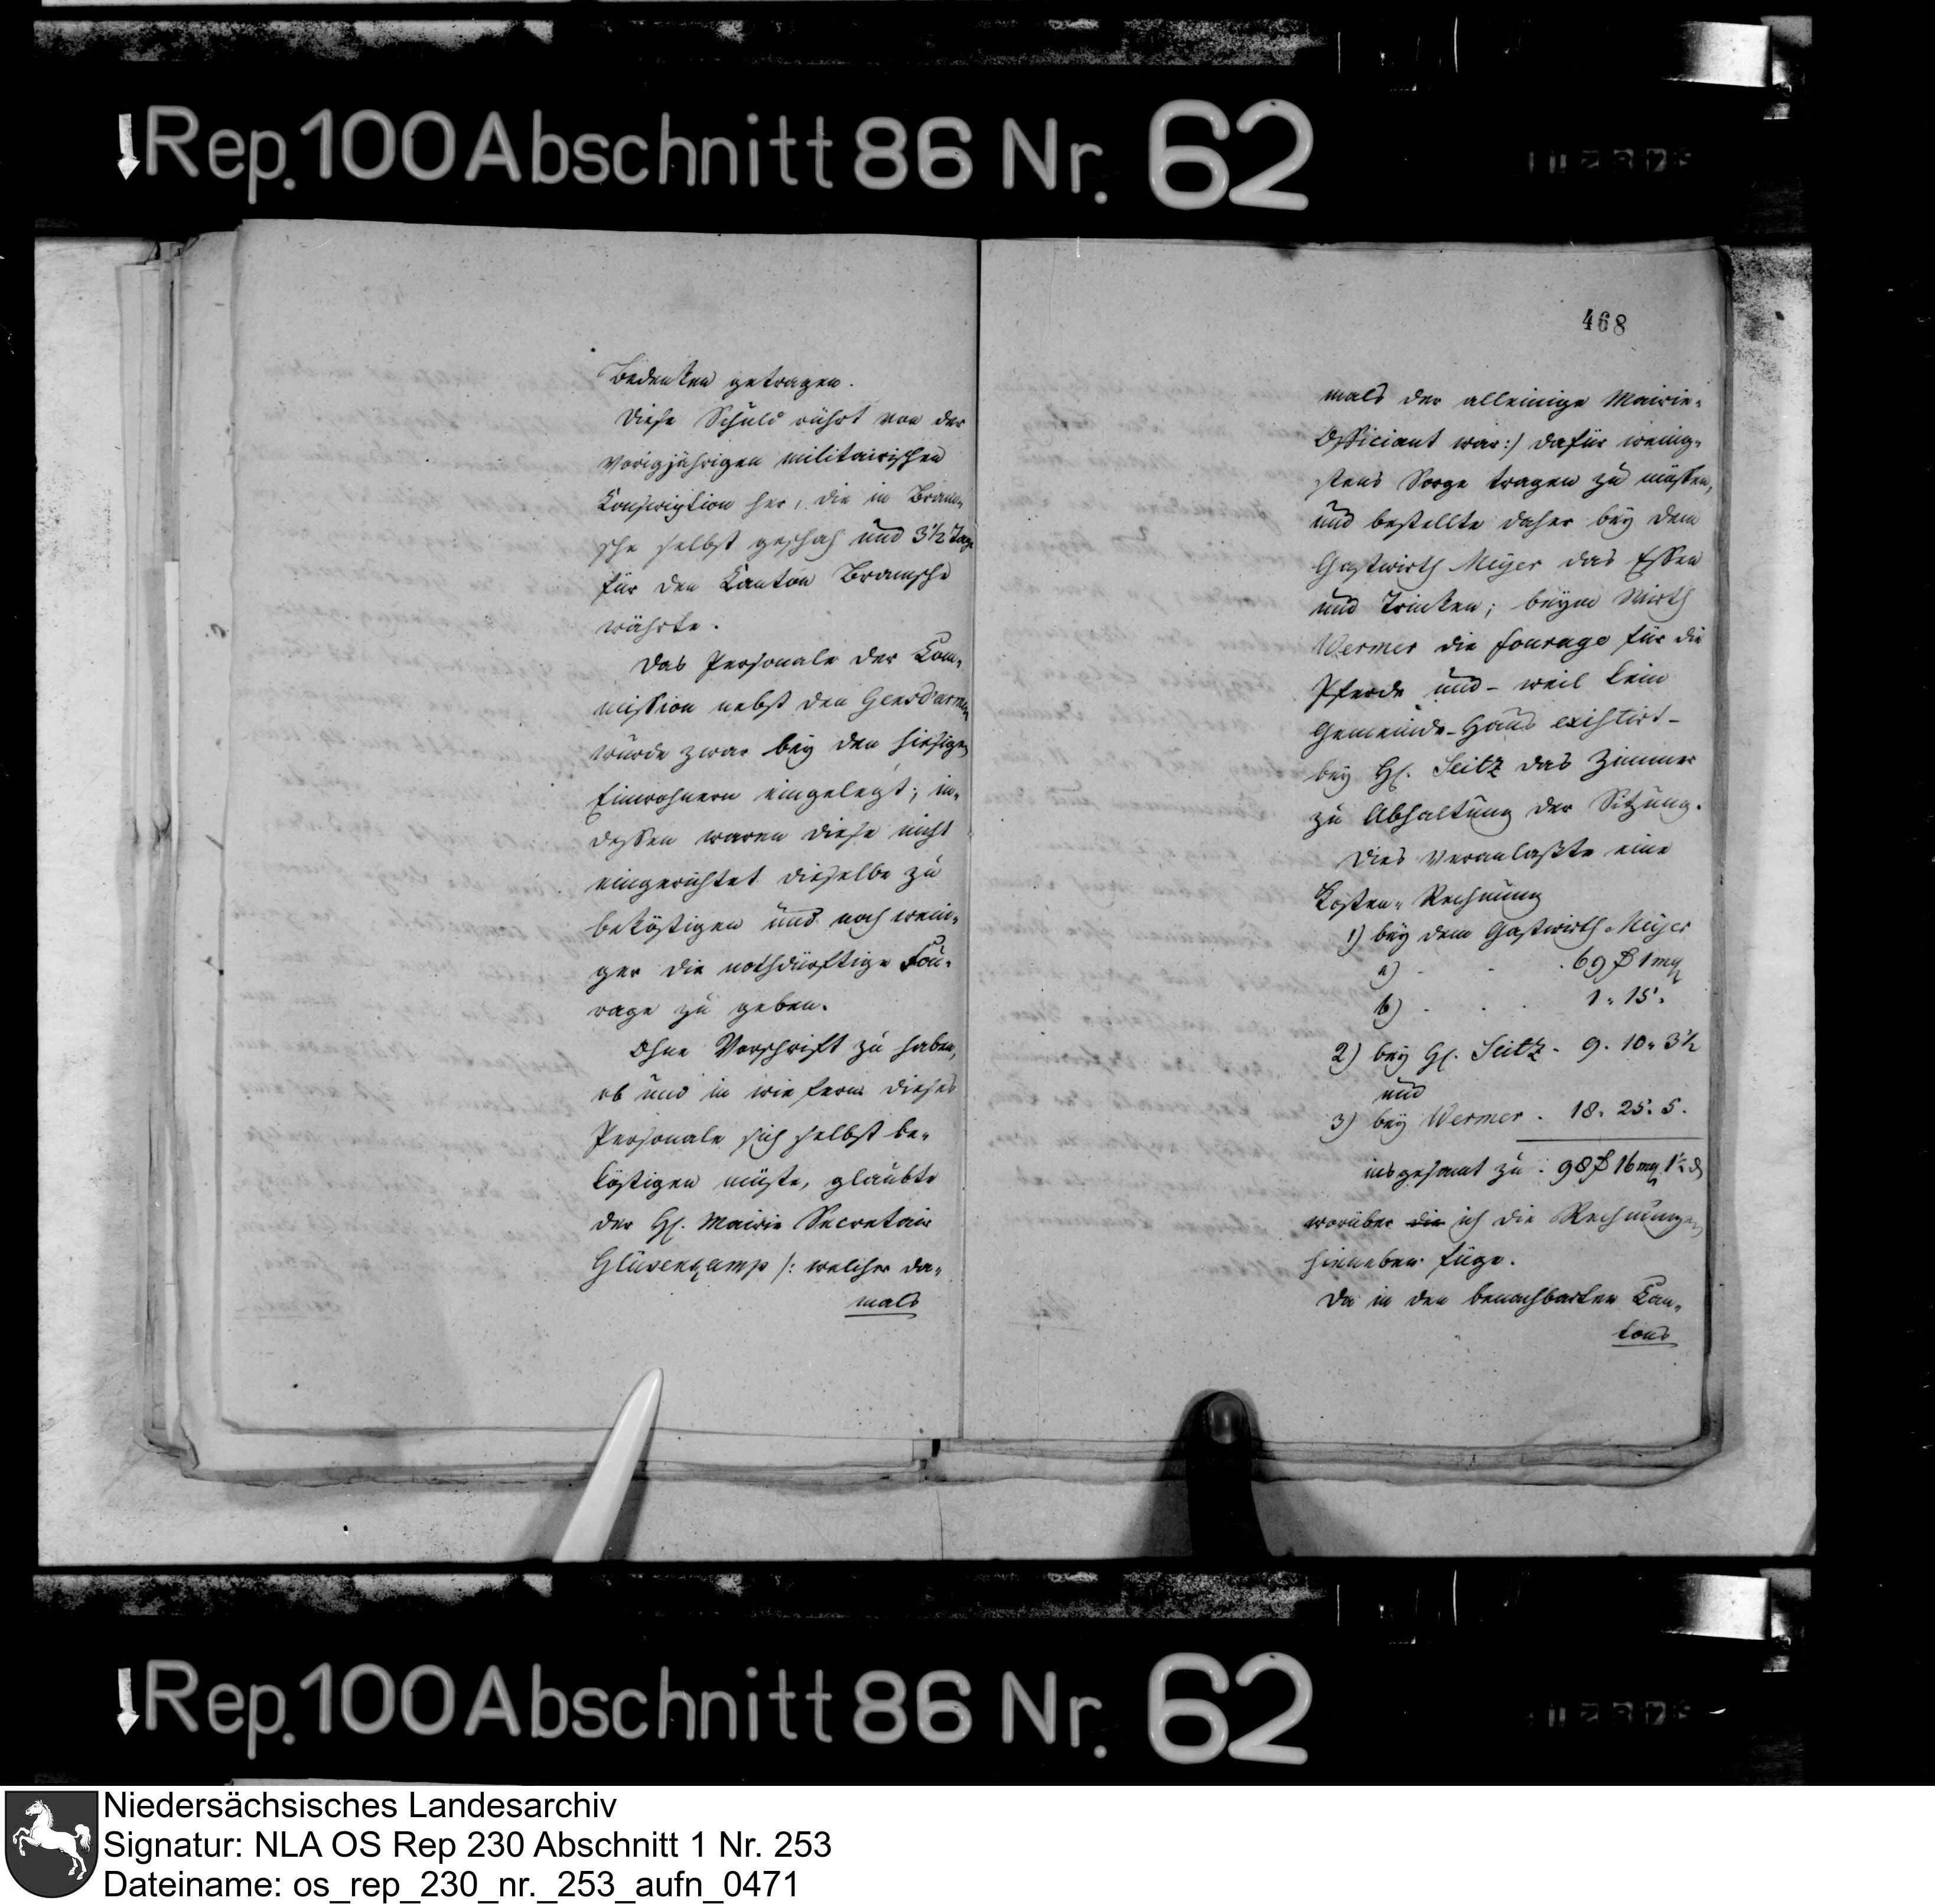 Rep. 100 Abschnitt 86 Nr. 62
Bedenken getragen.
Diese Schuld rührt von der
vorigjährigen militairischen
Conscription her, die in Bram-
sche selbst geschah und 3 1/2 Tage
für den Canton Bramsche
währte.
Das Personale der Com-
mission nebst den Gensdarmen
wurde zwar bey den hiesigen
Einwohnern eingelegt; in-
dessen waren diese nicht
eingerichtet dieselbe zu
beköstigen und noch weni-
ger die nothdürftige Fou-
rage zu geben.
Ohne Vorschrift zu haben,
ob und in wie fern dieses
Personale sich selbst be-
köstigen müste, glaubte
der H. Mairie Secretair
Glüsenkamp /: welcher da-
mals
468
mals der alleinige Mairie-
Officiant war :/ dafür wenig-
stens Sorge tragen zu müssen,
und bestellte daher bey dem
Gastwirth Meyer das Essen
und Trinken; beym Wirth
Wermer die Fourage für die
Pferde und - weil kein
Gemeinde-Haus existirt -
bey H. Seitz das Zimmer
zu Abhaltung der Sitzung.
Dies veranlaßte eine
Kosten-Rechnung
1) bey dem Gastwirth Meyer
a) . . . 69 ₰ 1 mg
b) . . . 1 " 15 "
2) bey H. Seitz - 9 . 10 " 3 1/2
und
3) bey Wermer . 18 . 25 . 5 .
insgesamt zu . 98 ₰ 16 mg 1 1/2 d
worüber die ich die Rechnungen
hieneben füge.
Da in den benachbarten Can-
tons
Rep. 100 Abschnitt 86 Nr. 62
Niedersächsisches Landesarchiv
Signatur: NLA OS Rep 230 Abschnitt 1 Nr. 253
Dateiname: os_rep_230_nr._253_aufn_0471